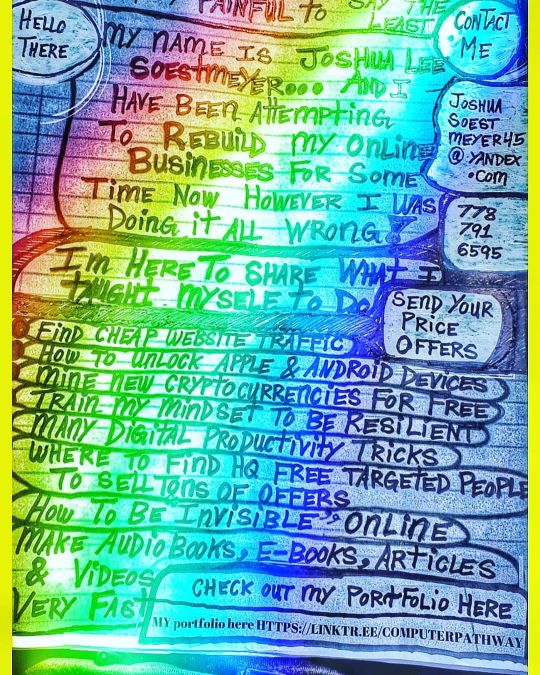 PAINFUL to SAY THE
LEAST
HELLO
THERE
CONTACT
ME
MY NAME IS JOSHUA LEE
SOESTMEYER... AND I
HAVE BEEN ATTEMPTING
TO REBUILD MY ONLINE
BUSINESSES FOR SOME
TIME NOW HOWEVER I WAS
DOING IT ALL WRONG!
JOSHUA
SOEST
MEYER45
@YANDEX
.COM
778
791
6595
I'M HERE TO SHARE WHAT I
TAUGHT MYSELF TO DO
SEND YOUR
PRICE
OFFERS
FIND CHEAP WEBSITE TRAFFIC
HOW TO UNLOCK APPLE & ANDROID DEVICES
MINE NEW CRYPTOCURRENCIES FOR FREE
TRAIN MY MINDSET TO BE RESILIENT
MANY DIGITAL PRODUCTIVITY TRICKS
WHERE TO FIND HQ FREE TARGETED PEOPLE
TO SELL TONS OF OFFERS
HOW TO BE INVISIBLE ONLINE
MAKE AUDIOBOOKS, E-BOOKS, ARTICLES
& VIDEOS
VERY FAST
CHECK OUT MY PORTFOLIO HERE
MY portfolio here HTTPS://LINKTR.EE/COMPUTERPATHWAY